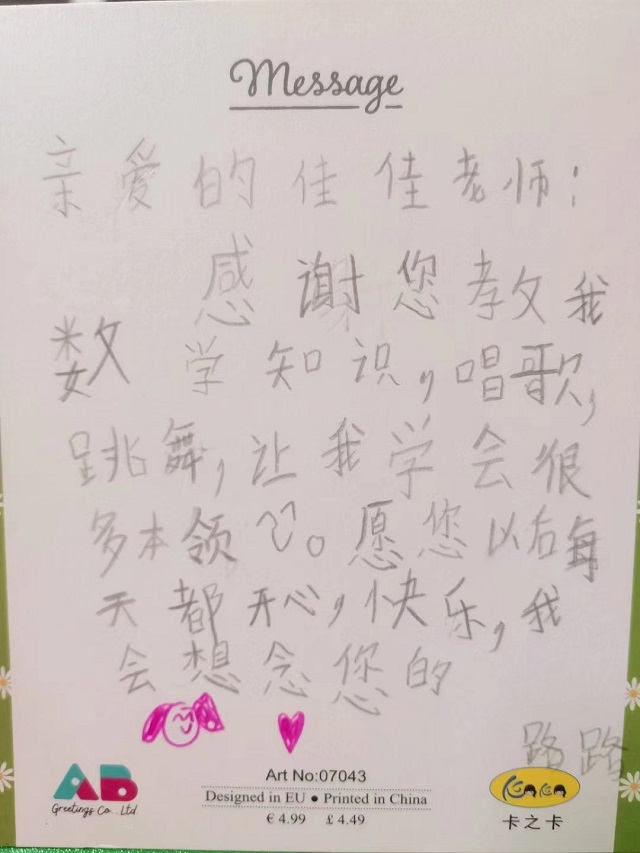 Message
亲爱的佳佳老师：
感谢您教我
数学知识，唱歌，
跳舞，让我学会很
多本领。愿您以后每
天都开心，快乐，我
会想念您的
路路
AB
Greetings Co. Ltd
Art No:07043
Designed in EU ● Printed in China
€ 4.99 £ 4.49
卡之卡